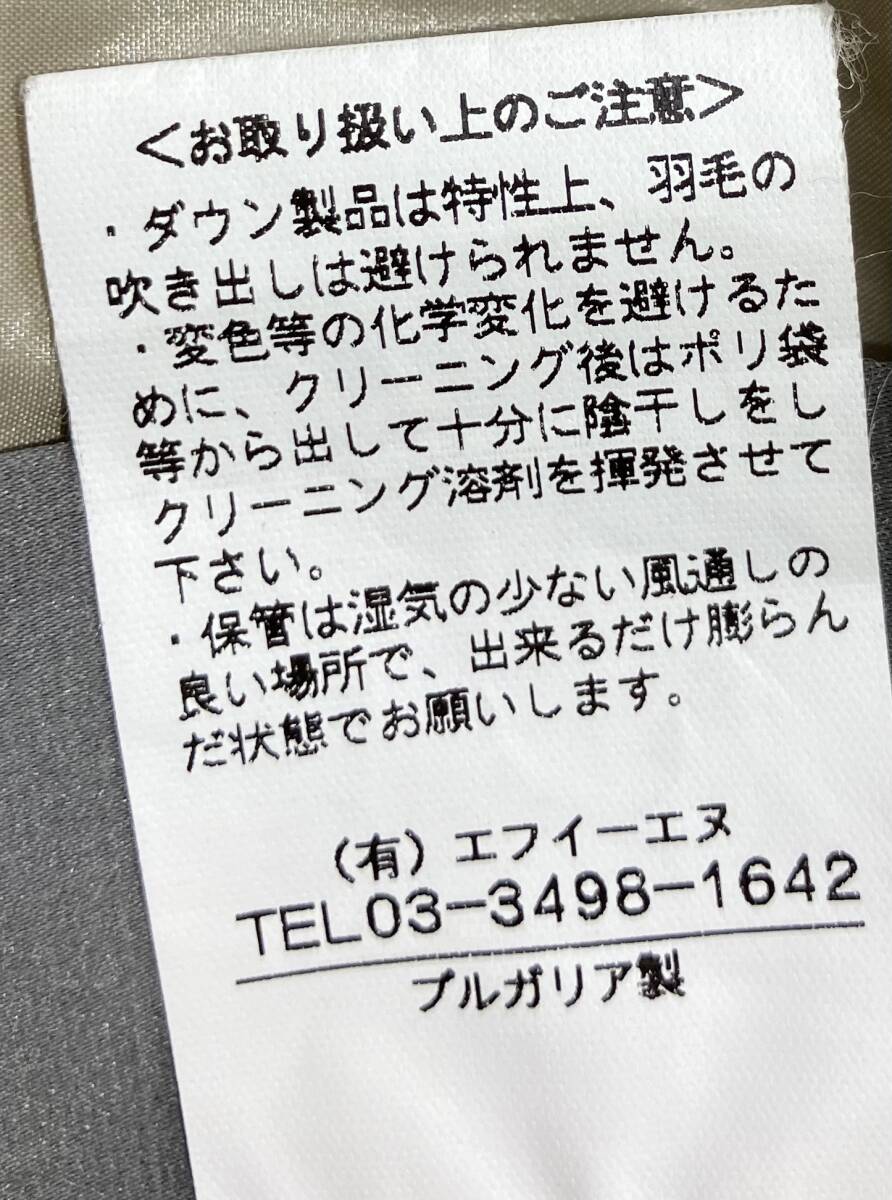 ＜お取り扱い上のご注意＞
・ダウン製品は特性上、羽毛の
吹き出しは避けられません。
・変色等の化学変化を避けるた
めに、クリーニング後はポリ袋
等から出して十分に陰干しをし
クリーニング溶剤を揮発させて
下さい。
・保管は湿気の少ない風通しの
良い場所で、出来るだけ膨らん
だ状態でお願いします。
(有)エフイーエヌ
TEL03-3498-1642
ブルガリア製